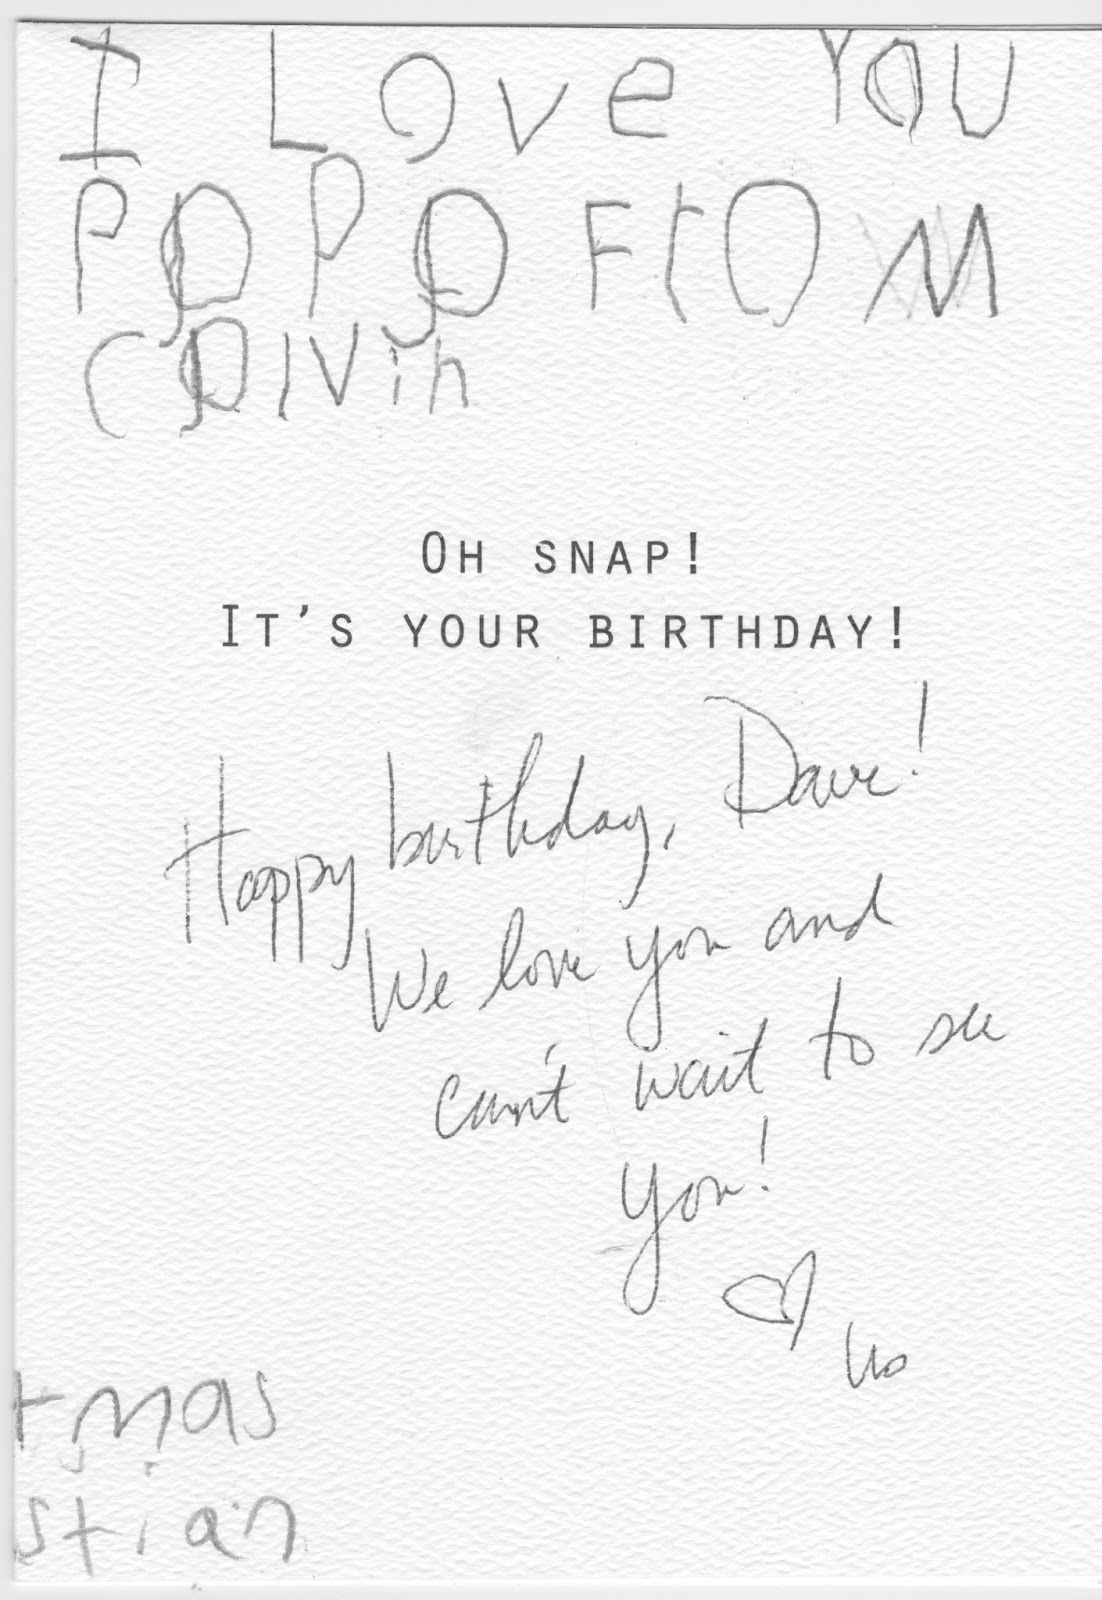 I Love YOU
PaPa From
Calvin
OH SNAP!
IT'S YOUR BIRTHDAY!
Happy birthday, Dave!
We love you and
can't wait to see
you!
tmas
stian